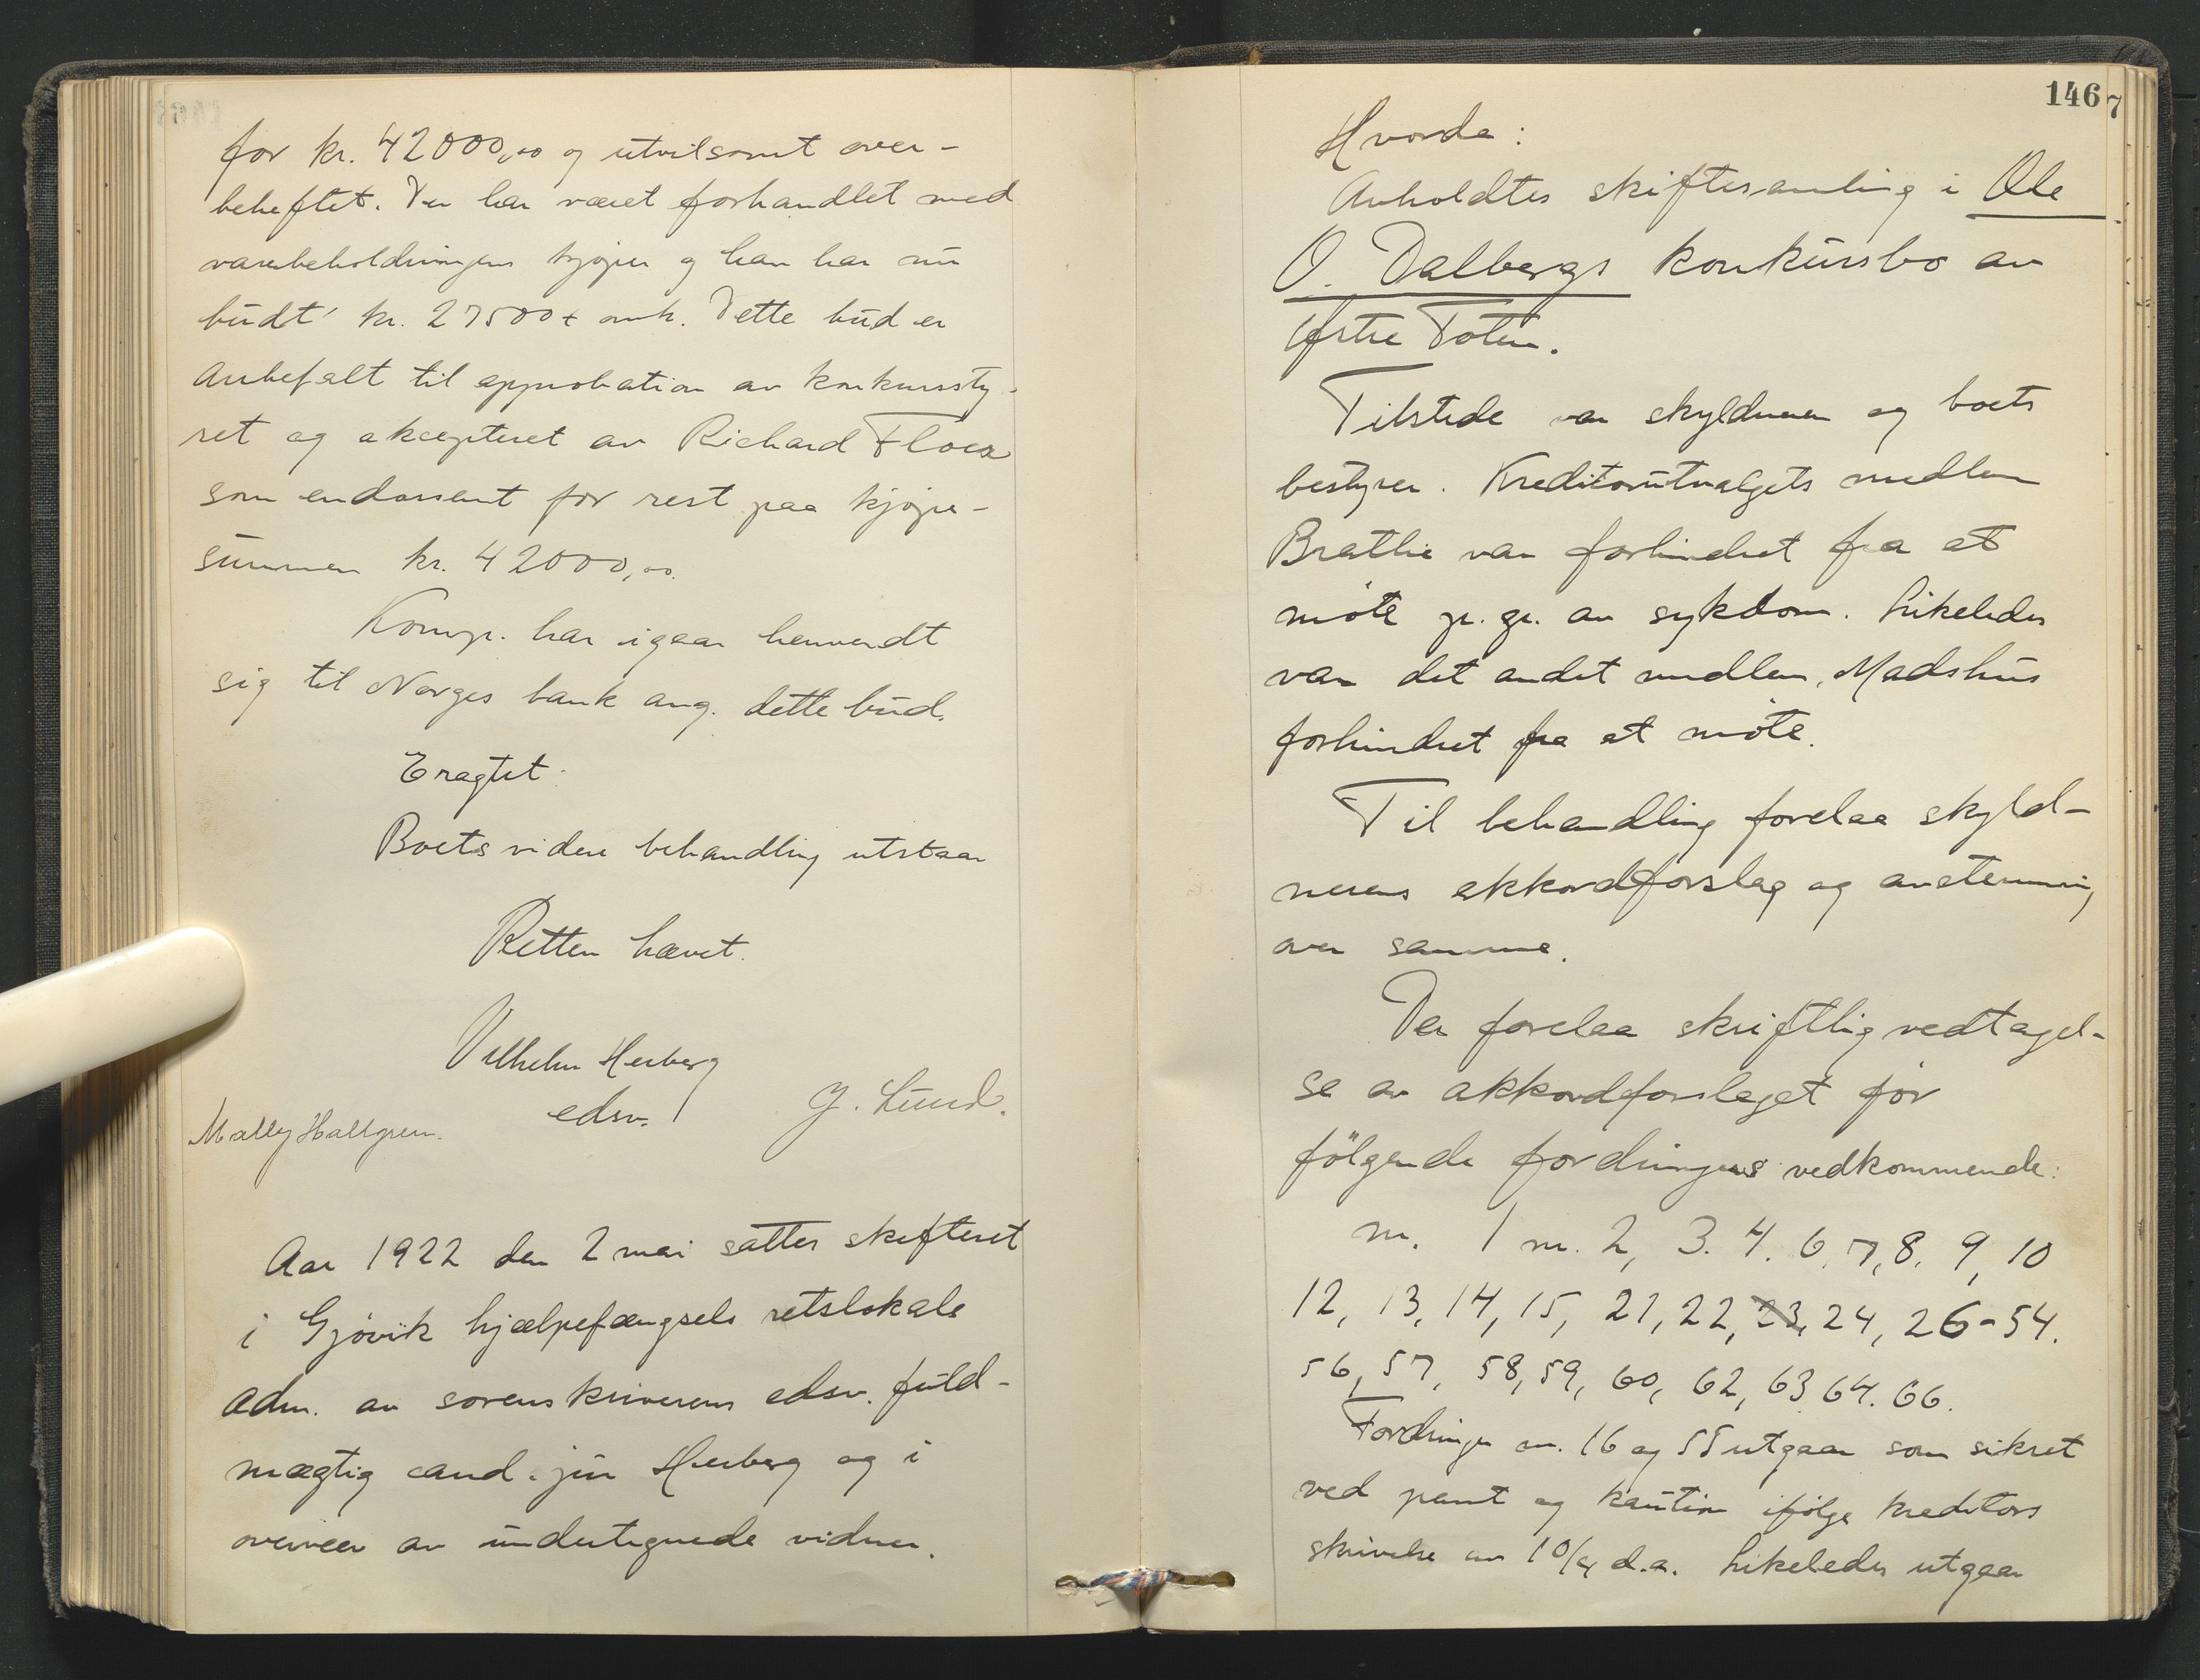 for kr. 42000,00 og utvilsomt over-
beheftet. Der har været forhandlet med
varebeholdningens kjøper og han har nu
budt kr. 27500 + omk. Dette bud er
anbefalt til approbation av konkurssty-
ret og akcepteret av Richard Floea
som endossent for rest paa kjøpe-
summen kr. 42000,00.
Komp. har igaar henvendt
sig til Norges bank ang. dette bud.
Eragtet:
Boets videre behandling utstaar
Retten hævet.
Vilhelm Herberg
edsv.
G. Lund.
Mally Hallgren.
Aar 1922 den 2 mai sattes skifteret
i Gjøvik hjælpefængsels retslokale
adm. av sorenskriverens edsv. fuld-
mægtig cand. jur Herberg og i
overvær av undertegnede vidner.
146 7
Hvorda:
Avholdtes skiftesamling i Ole
O. Dalbergs konkursbo av
Østre Toten.
Tilstede var skyldneren og boets
bestyrer. Kreditorutvalgets medlem
Brathe var forhindret fra at
möte p. gr. av sykdom. Likeledes
var det andet medlem, Madshus
forhindret fra at möte.
Til behandling forelaa skyld-
nerens akkordforslag og avstemning
over samme.
Der forelaa skriftlig vedtagel-
se av akkordforslaget for
følgende fordringers vedkommende:
nr. 1 nr. 2, 3. 4. 6, 7, 8. 9, 10
12, 13, 14, 15, 21, 22, 23, 24, 26-54.
56, 57, 58, 59, 60, 62, 63 64. 66.
Fordringer nr. 16 og 55 utgaar som sikret
ved pant og kaution ifølge kreditors
skrivelse av 10/4 d.a. Likeledes utgaar